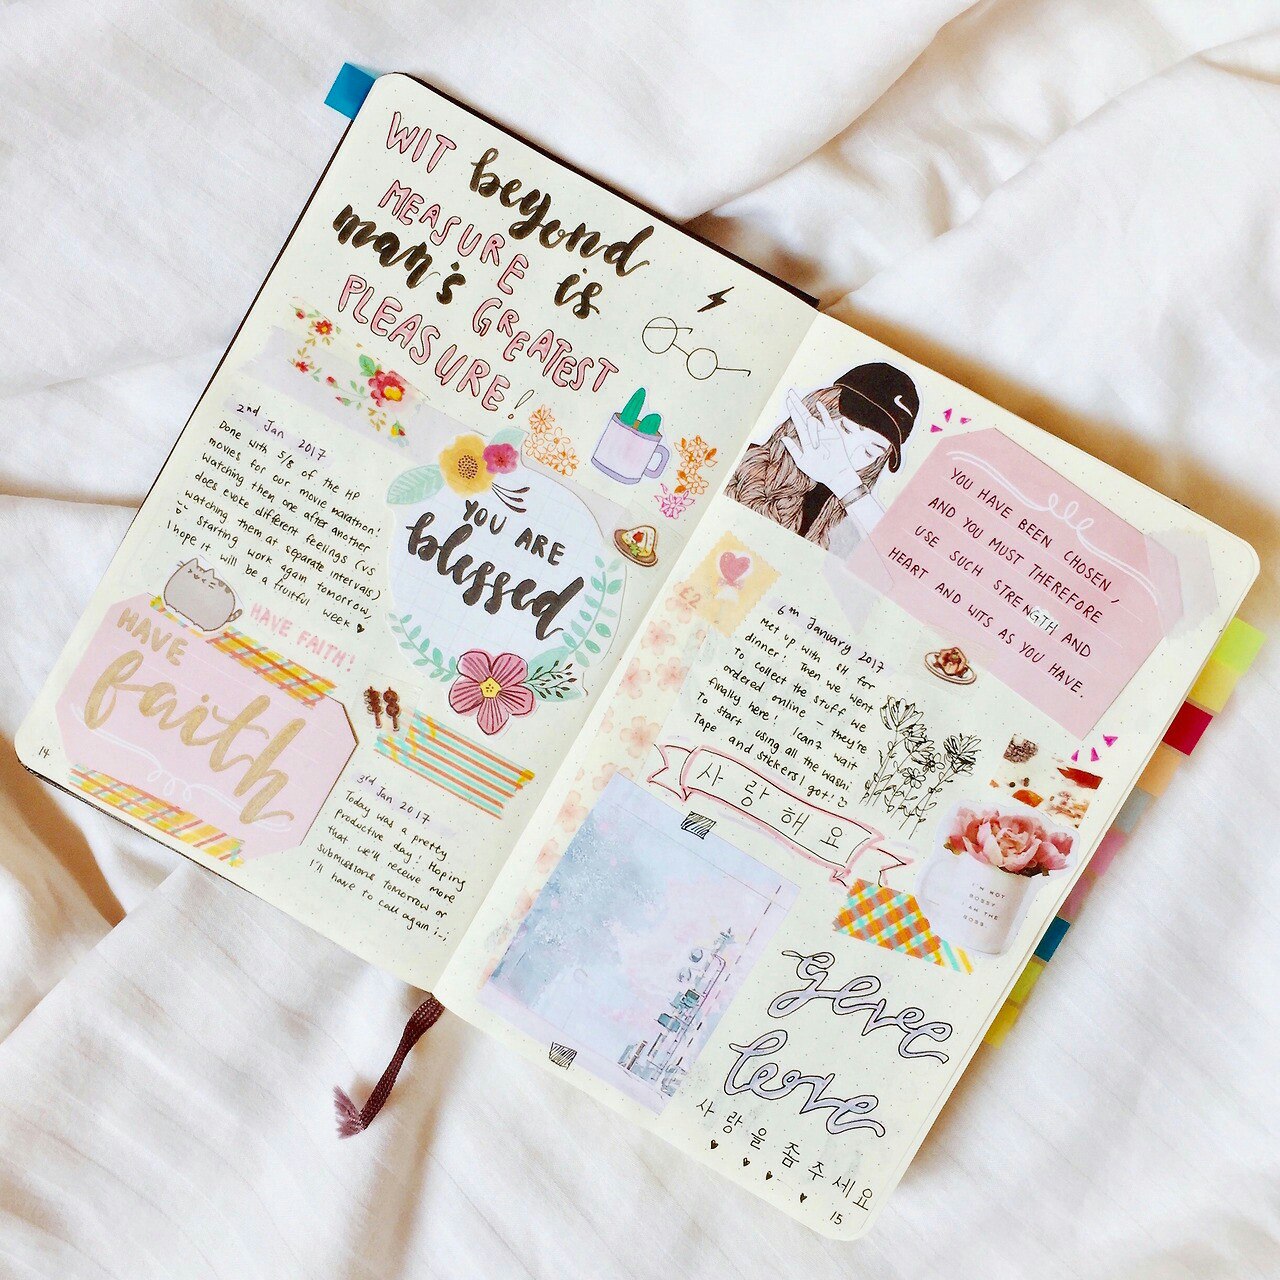 WIT beyond
MEASURE is
man's GREATEST
PLEASURE!
2nd Jan 2017
Done with 5/8 of the HP
movies for our movie marathon!
Watching them one after another
does evoke different feelings (vs
watching them at separate intervals)
Starting work again tomorrow,
I hope it will be a fruitful week
YOU ARE
blessed
HAVE FAITH!
HAVE
faith
3rd Jan 2017
Today was a pretty
productive day! Hoping
that we'll receive more
submissions tomorrow or
I'll have to call again i-i
14
YOU HAVE BEEN CHOSEN,
AND YOU MUST THEREFORE
USE SUCH STRENGTH AND
HEART AND WITS AS YOU HAVE.
£2
6th January 2017
Met up with SH for
dinner! Then we went
to collect the stuff we
ordered online - they're
finally here! I can't wait
to start using all the washi
tape and stickers I got!
사랑해요
I'M NOT
BOSSY
I AM THE
BOSS.
give
love
사랑을 좀 주세요
15